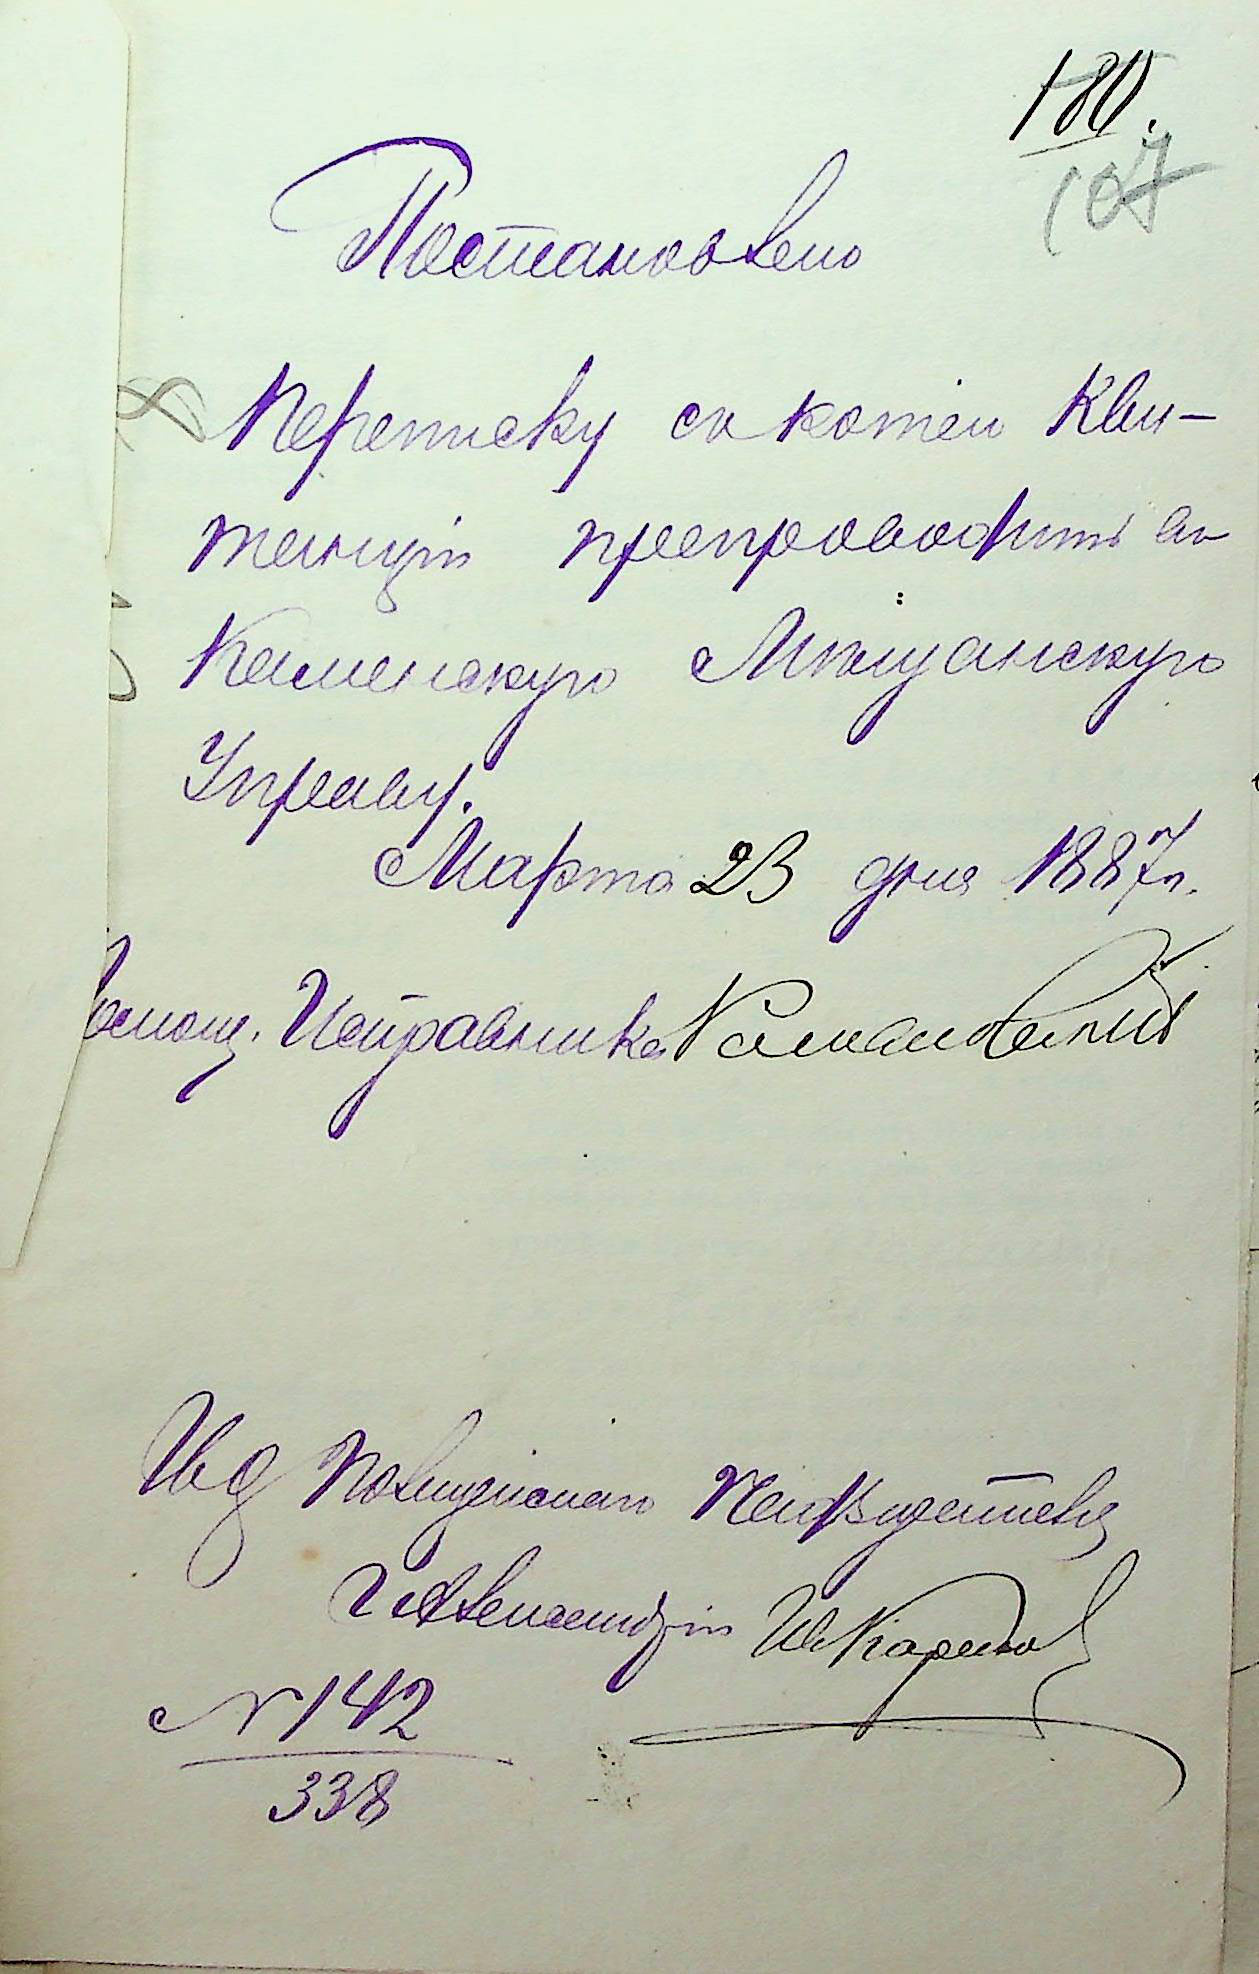 180.
107
Постановлено
Переписку съ копіею Кви-
танціи препроводить въ
Каменскую Мѣщанскую
Управу.
Марта 23 дня 1887 г.
Помощ. Исправника
И в д Полицейскаго
№ 142
338